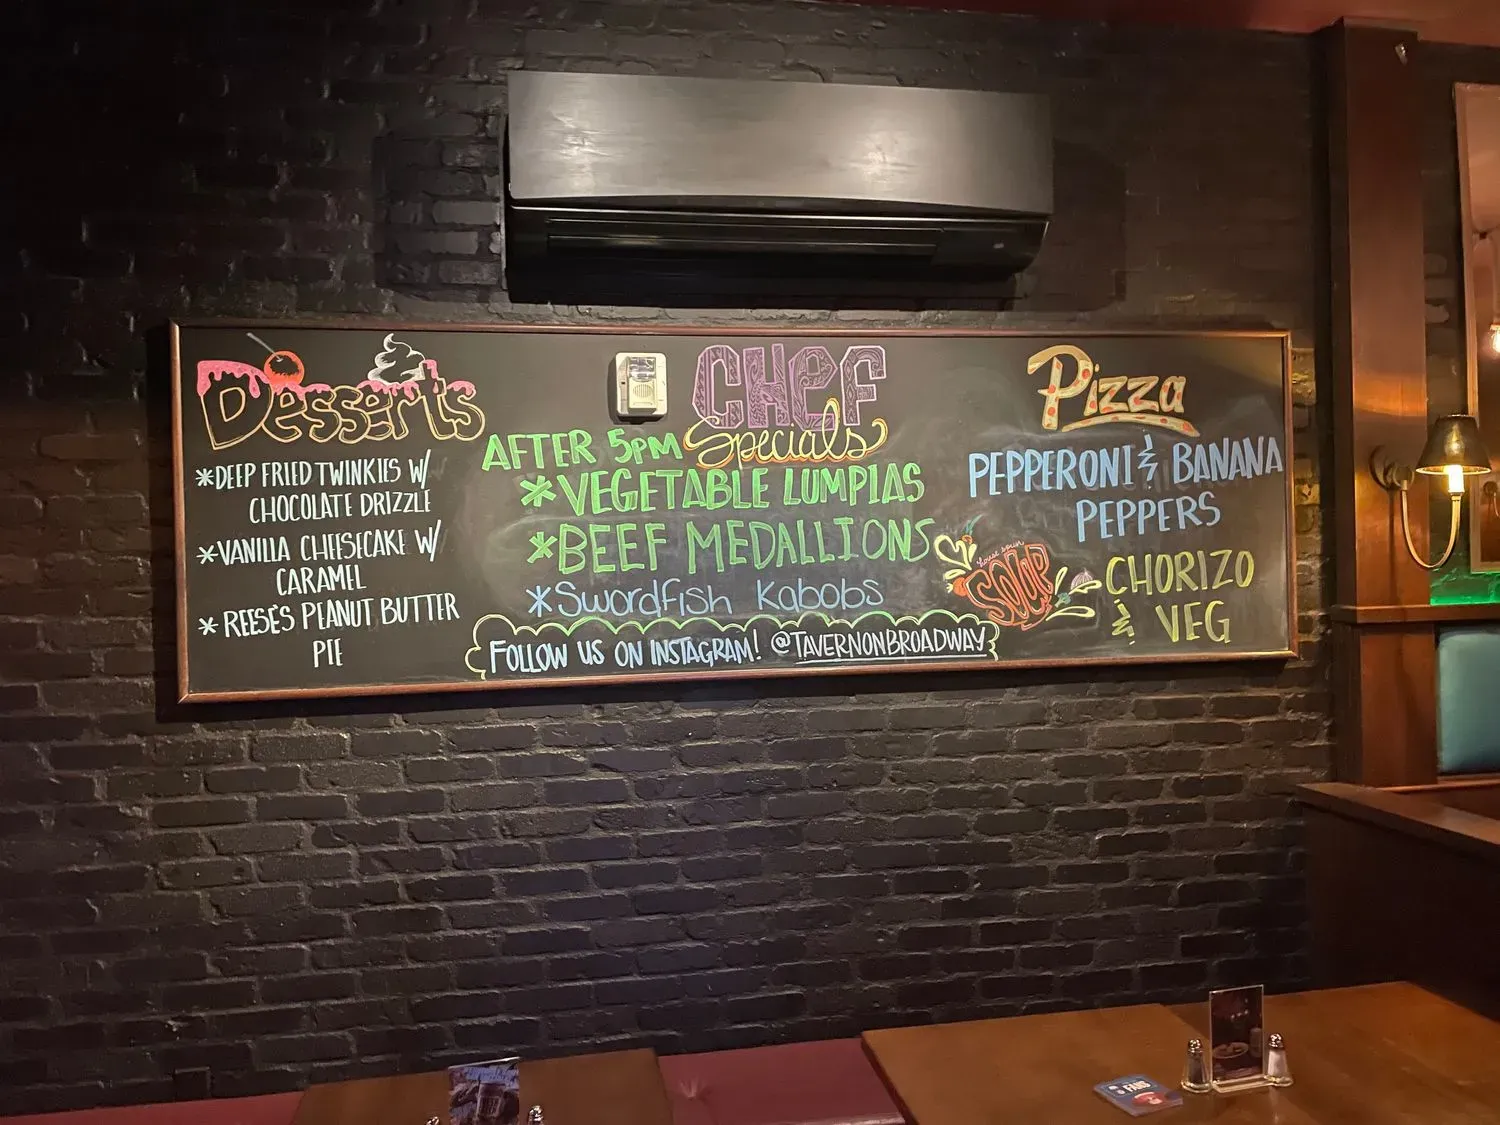 Desserts
*DEEP FRIED TWINKIES W/
CHOCOLATE DRIZZLE
*VANILLA CHEESECAKE W/
CARAMEL
*REESE'S PEANUT BUTTER
PIE
CHEF
Specials
AFTER 5PM
*VEGETABLE LUMPIAS
*BEEF MEDALLIONS
*Swordfish Kabobs
FOLLOW US ON INSTAGRAM! @TAVERNONBROADWAY
Pizza
PEPPERONI & BANANA
PEPPERS
SOUP
CHORIZO
& VEG